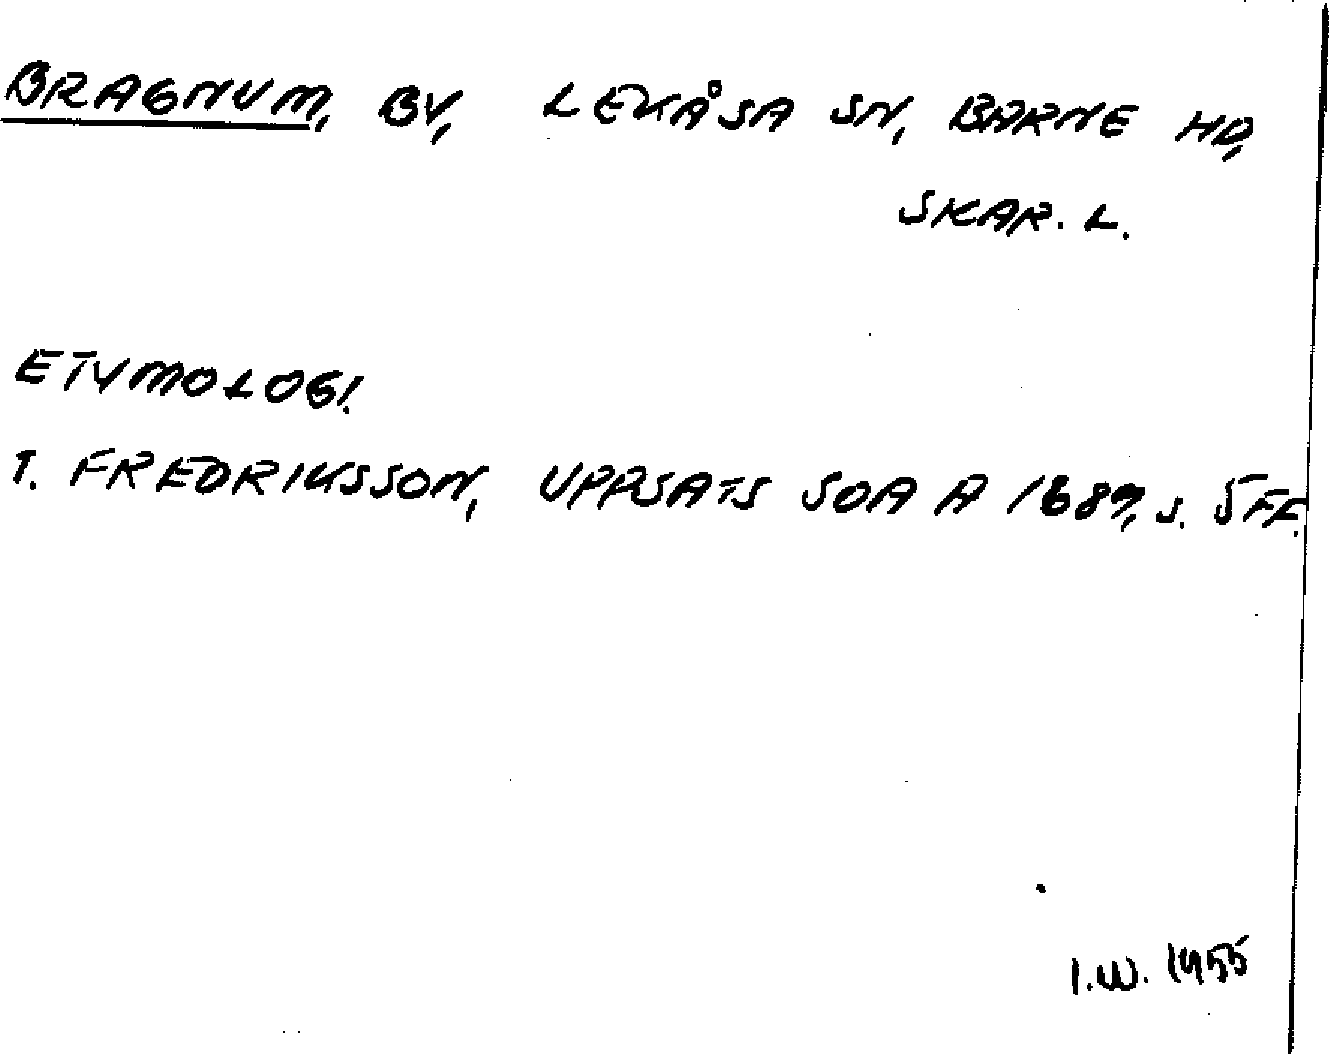 BRAGNUM, BY, LEKÅSA SN, BARNE HD,
SKAR. L.
ETYMOLOGI.
T. FREDRIKSSON, UPPSATS SOA A 1689, S. 5FF.
I.W. 1955